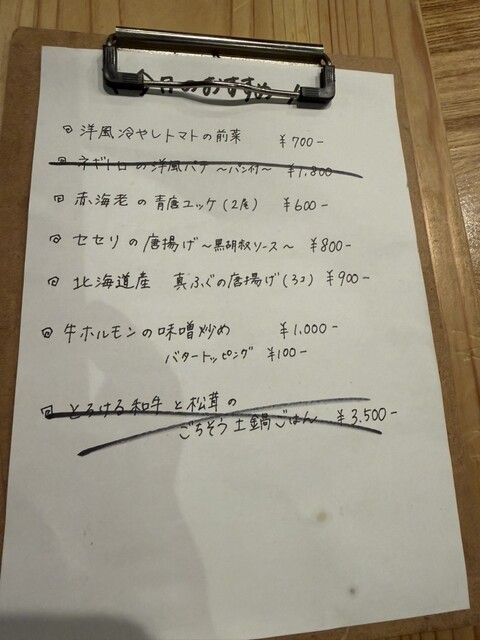 今日のおすすめ
洋風冷やしトマトの前菜 ¥700-
ネギトロの洋風パテ ～パン付～ ¥1,800-
赤海老の青唐ユッケ(2尾) ¥600-
セセリの唐揚げ～黒胡椒ソース～ ¥800-
北海道産 真ふぐの唐揚げ(3コ) ¥900-
牛ホルモンの味噌炒め ¥1,000-
バタートッピング ¥100-
とろける和牛と松茸の
ごちそう土鍋ごはん ¥3,500-